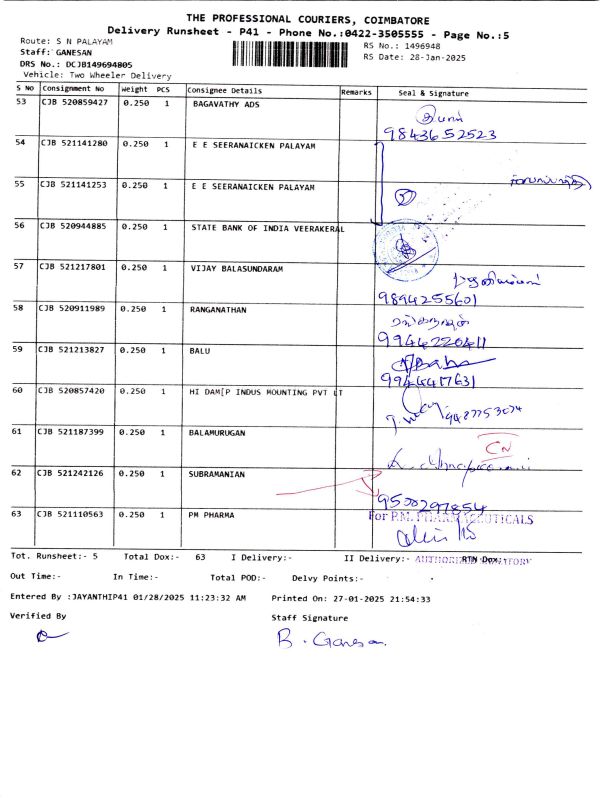 THE PROFESSIONAL COURIERS, COIMBATORE
Delivery Runsheet - P41 - Phone No.:0422-3505555 - Page No.:5
Route: S N PALAYAM RS No.: 1496948
Staff: GANESAN RS Date: 28-Jan-2025
DRS No.: DCJB149694805
Vehicle: Two Wheeler Delivery
S NO Consignment No Weight PCS Consignee Details Remarks Seal & Signature
53 CJB 520859427 0.250 1 BAGAVATHY ADS
9843652523
54 CJB 521141280 0.250 1 E E SEERANAICKEN PALAYAM
55 CJB 521141253 0.250 1 E E SEERANAICKEN PALAYAM
56 CJB 520944885 0.250 1 STATE BANK OF INDIA VEERAKERAL
57 CJB 521217801 0.250 1 VIJAY BALASUNDARAM
9894255601
58 CJB 520911989 0.250 1 RANGANATHAN
9944220411
59 CJB 521213827 0.250 1 BALU
9944417631
60 CJB 520857420 0.250 1 HI DAM[P INDUS MOUNTING PVT LT
9487753074
61 CJB 521187399 0.250 1 BALAMURUGAN
CN
62 CJB 521242126 0.250 1 SUBRAMANIAN
9500297854
63 CJB 521110563 0.250 1 PM PHARMA
For P.M. PHARMACEUTICALS
Tot. Runsheet:- 5 Total Dox:- 63 I Delivery:- II Delivery:- RTN Dox:-
AUTHORIZED SIGNATORY
Out Time:- In Time:- Total POD:- Delvy Points:-
Entered By :JAYANTHIP41 01/28/2025 11:23:32 AM Printed On: 27-01-2025 21:54:33
Verified By Staff Signature
B. Ganesan